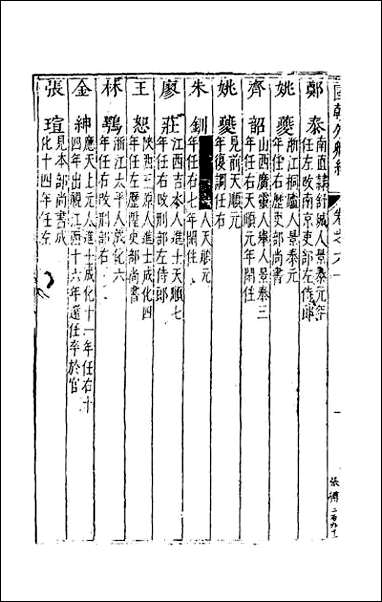 鄭泰 南直隸舒城人景泰元年
任左改南京吏部左侍郎
姚夔 浙江桐廬人景泰元
年任右歷吏部尚書
齊韶 山西廣靈人舉人景泰三
年任右天順元年閒住
姚夔 見前天順元
年復調任右
朱釗 人天順元
年任右七年閒住
廖莊 江西吉水人進士天順七
年任右改刑部左侍郎
王恕 陝西三原人進士成化四
年任左歷陞吏部尚書
林鶚 浙江太平人成化六
年任右改刑部右
金紳 應天上元人進士成化十一年任右十
四年出視江西十六年還任卒於官
張瑄 見本部尚書成
化十四年任左